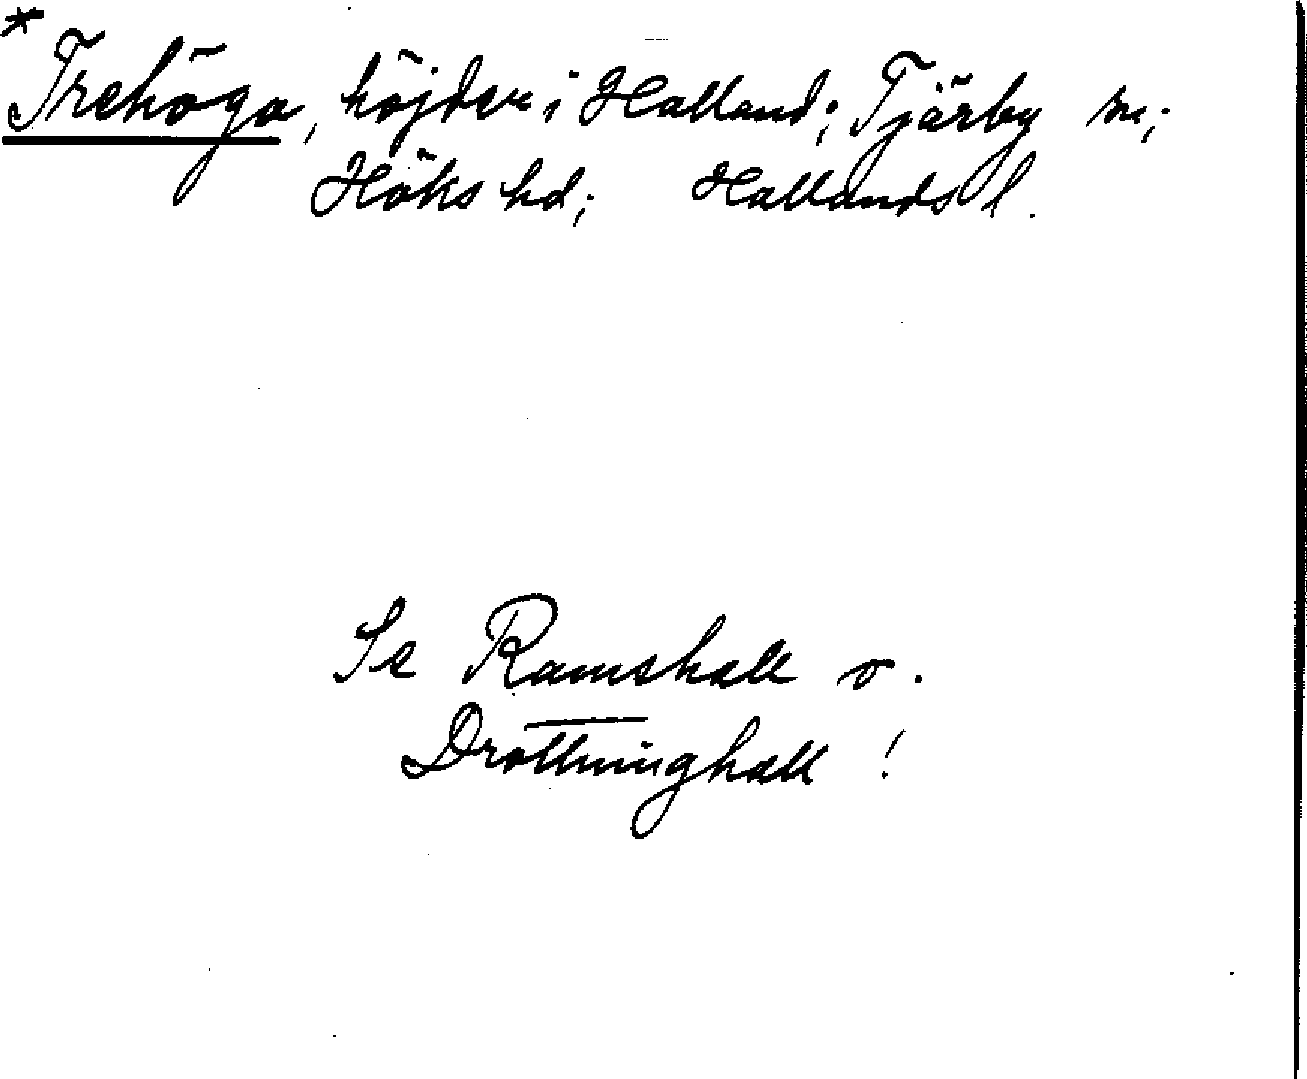 *Trehöga, höjder i Halland; Tjärby sn;
Höks hd; Hallands l.
Se Ramshall o.
Drottninghall!